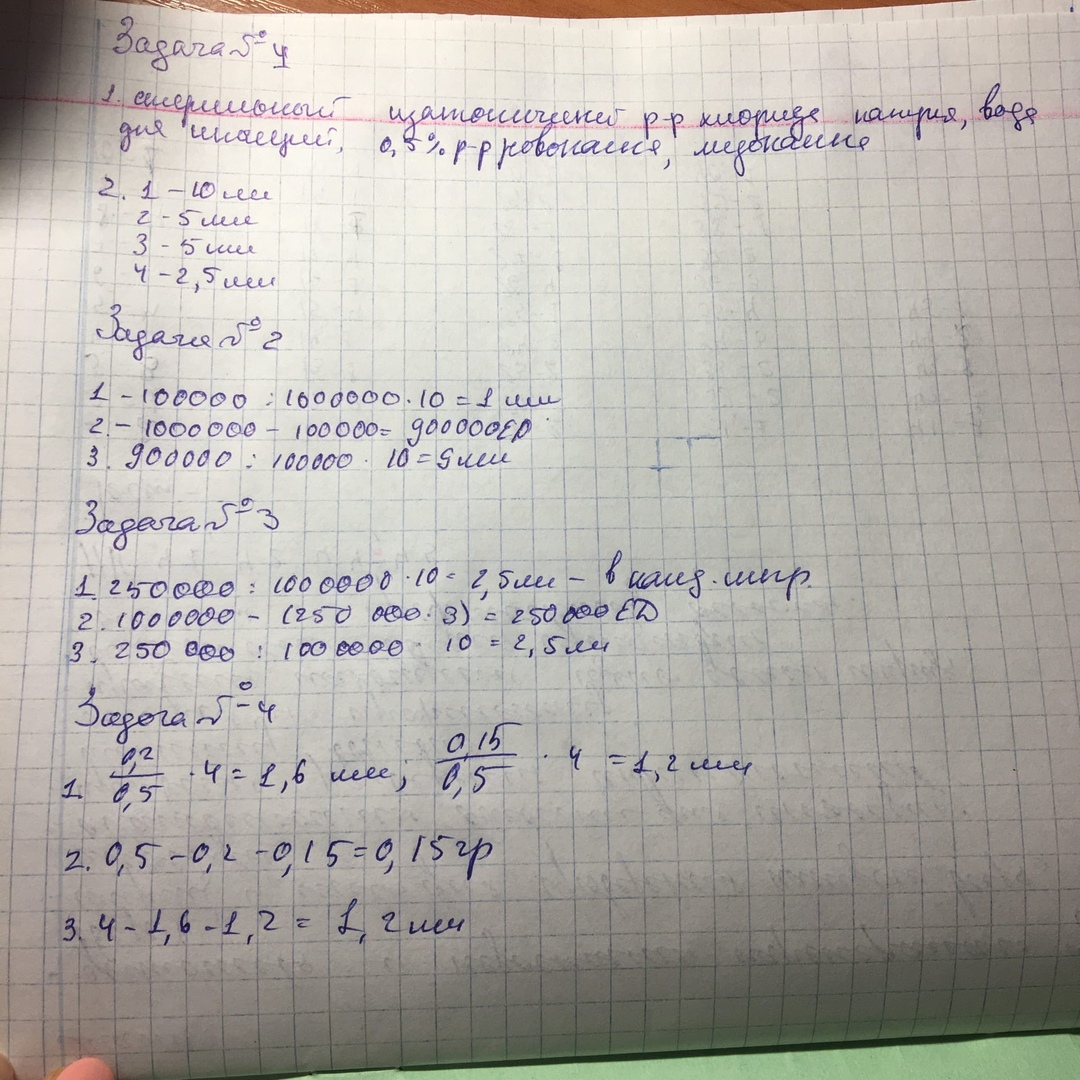 Задача № 1
1. стерильный изотонический р-р хлорида натрия, вода
для инъекций, 0,5% р-р новокаина, лидокаина
2. 1 - 10 мл
2 - 5 мл
3 - 5 мл
4 - 2,5 мл
Задача № 2
1 - 100000 : 1000000 · 10 = 1 мл
2. - 1000000 - 100000 = 900000 ЕД
3. 900000 : 100000 · 10 = 9 мл
Задача № 3
1. 250000 : 1000000 · 10 = 2,5 мл - в кажд. шпр.
2. 1000000 - (250 000 · 3) = 250 000 ЕД
3. 250 000 : 1000000 · 10 = 2,5 мл
Задача № 4
1. 0,2/0,5 · 4 = 1,6 мл; 0,15/0,5 · 4 = 1,2 мл
2. 0,5 - 0,2 - 0,15 = 0,15 гр
3. 4 - 1,6 - 1,2 = 1,2 мл